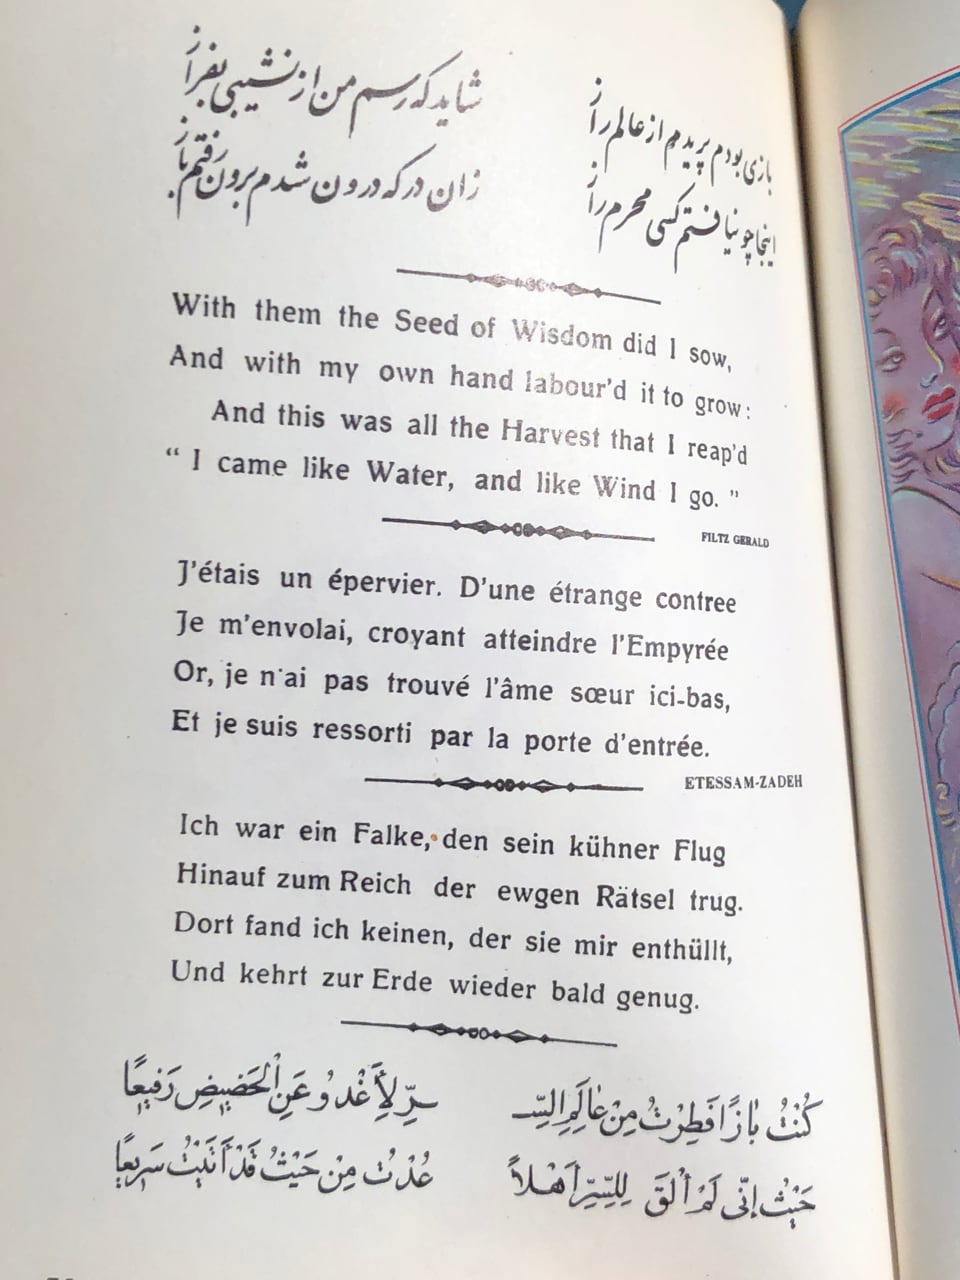 بازی بودم پریدم از عالم راز شاید که رسم من از نشیبی بفراز
اینجا چو نیافتم کسی محرم راز زان در که درون شدم برون رفتم باز
With them the Seed of Wisdom did I sow,
And with my own hand labour'd it to grow:
And this was all the Harvest that I reap'd
“ I came like Water, and like Wind I go. ”
FILTZ GERALD
J'étais un épervier. D'une étrange contree
Je m'envolai, croyant atteindre l'Empyrée
Or, je n'ai pas trouvé l'âme sœur ici-bas,
Et je suis ressorti par la porte d'entrée.
ETESSAM-ZADEH
Ich war ein Falke, den sein kühner Flug
Hinauf zum Reich der ewgen Rätsel trug.
Dort fand ich keinen, der sie mir enthüllt,
Und kehrt zur Erde wieder bald genug.
كُنْتُ بٰازًا فَطِرْتُ مِنْ عٰالَمِ السِّـ ـرِّ لِأَغْدُو عَنِ الْحَضيٖضِ رَفيٖعًا
حَيْثُ اِنّى لَمْ أَلْقَ لِلسِّرِّ اَهْلاً عُدْتُ مِنْ حَيْثُ قَدْ أَتَيْتُ سَريٖعًا